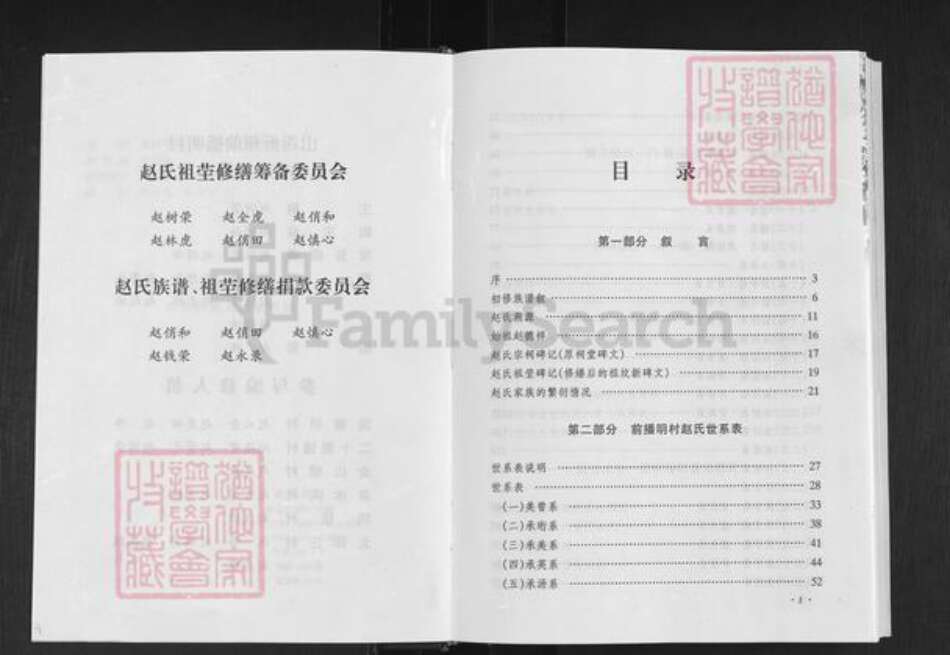 赵氏祖茔修缮筹备委员会
赵树荣 赵全虎 赵俏和
赵林虎 赵俏田 赵慎心
赵氏族谱、祖茔修缮捐款委员会
赵俏和 赵俏田 赵慎心
赵钱荣 赵永录
目 录
第一部分 叙 言
序 3
初修族谱叙 6
赵氏溯源 11
始祖赵德祥 16
赵氏宗祠碑记(原祠堂碑文) 17
赵氏祖茔碑记(修缮后的祖坟新碑文) 19
赵氏家族的繁衍情况 21
第二部分 前播明村赵氏世系表
世系表说明 27
世系表 28
(一)英曾系 33
(二)承珩系 38
(三)承美系 41
(四)承英系 44
(五)承濟系 52
FamilySearch